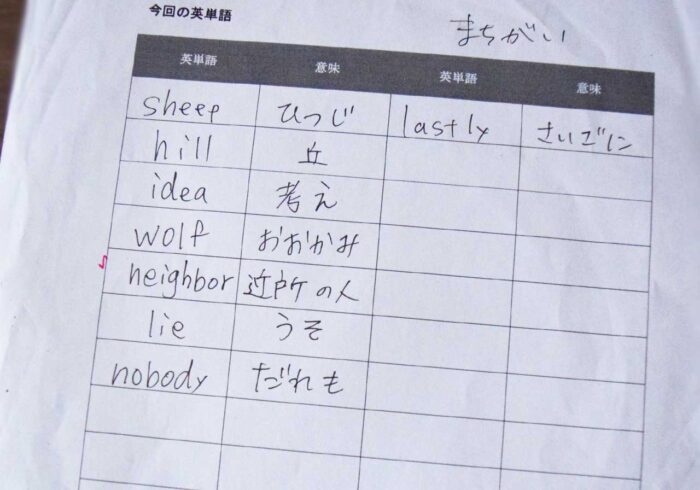 今回の英単語
まちがい
英単語 意味 英単語 意味
sheep ひつじ lastly さいごに
hill 丘
idea 考え
wolf おおかみ
neighbor 近所の人
lie うそ
nobody だれも